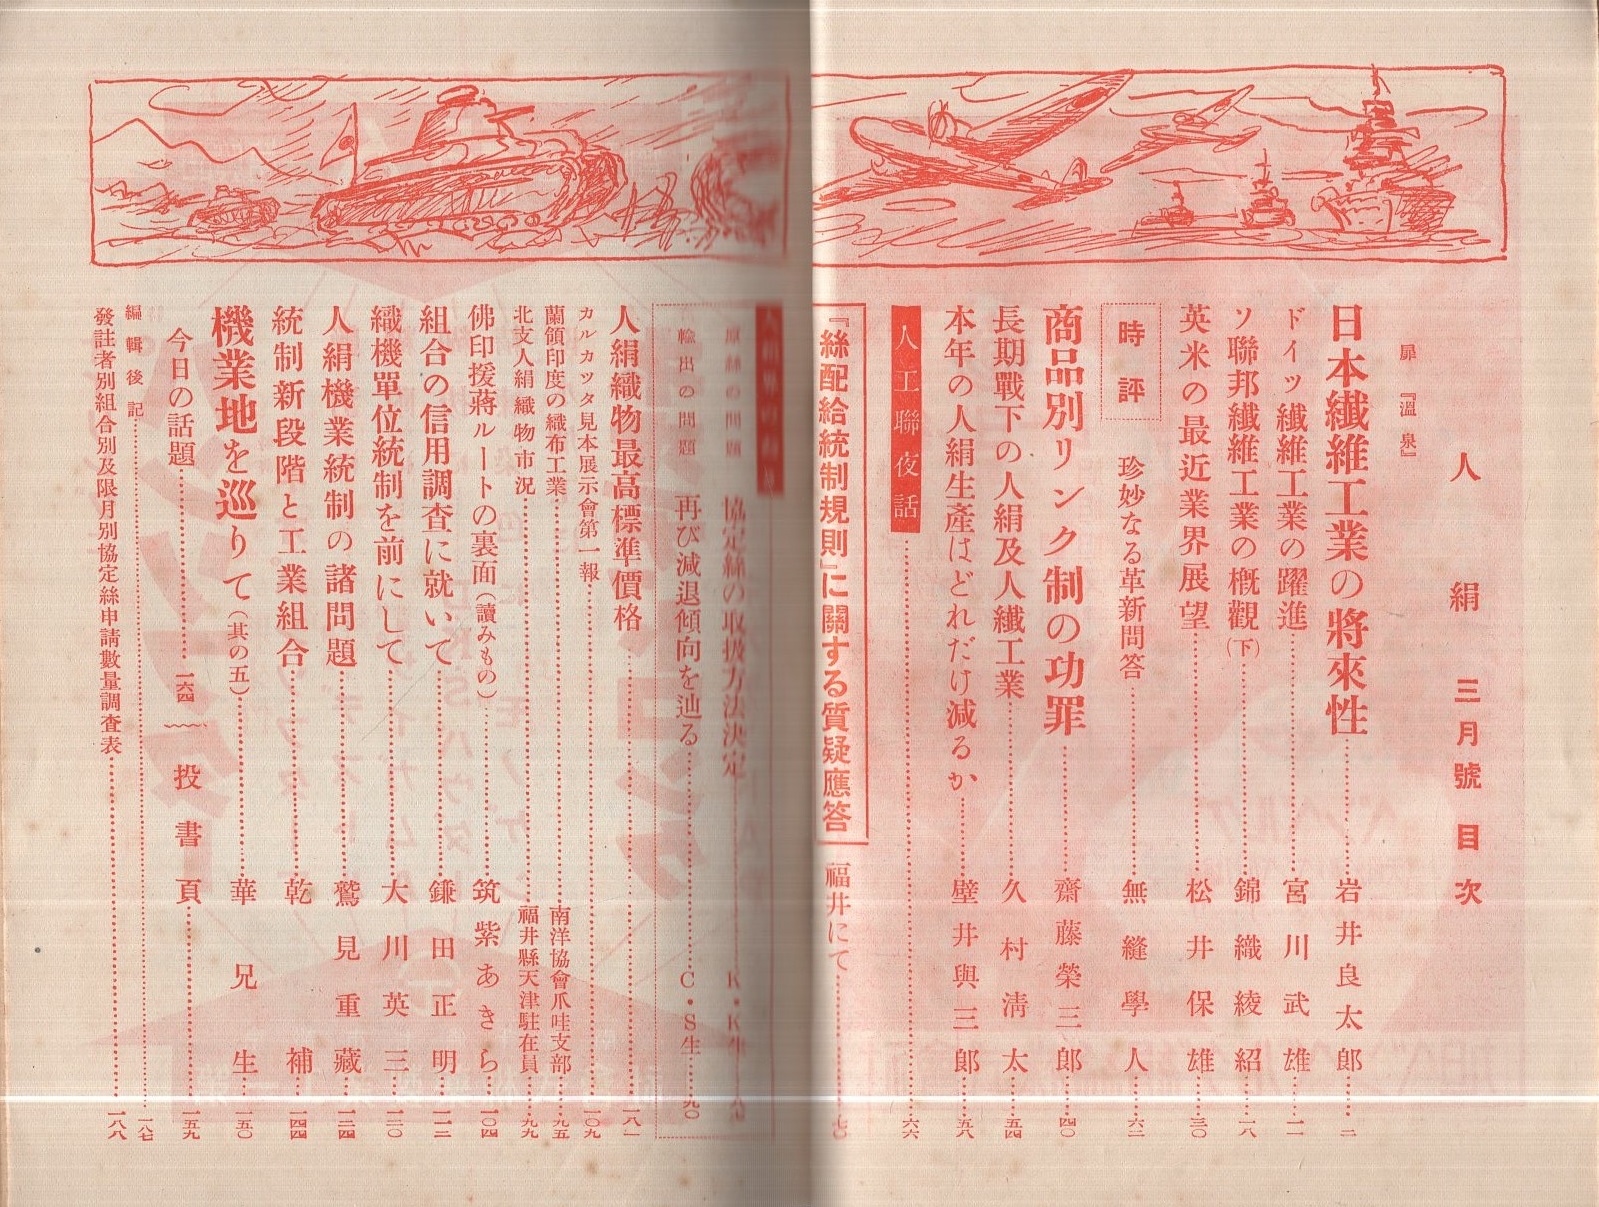 人絹 三月號 目次
扉『溫泉』
日本纖維工業の將來性…………岩井良太郎……二
ドイツ纖維工業の躍進…………宮川武雄……一一
ソ聯邦纖維工業の槪觀(下)…………錦織綾紹……一八
英米の最近業界展望…………松井保雄……三〇
時評 珍妙なる革新問答…………無縫學人……六二
商品別リンク制の功罪…………齋藤榮三郎……四〇
長期戰下の人絹及人纖工業…………久村淸太……五四
本年の人絹生產はどれだけ減るか…………壁井與三郎……五八
人工聯夜話…………六六
『絲配給統制規則』に關する質疑應答 福井にて…………七〇
原絲の問題 協定絲の取扱方法決定…………K・K生
輸出の問題 再び減退傾向を辿る…………C・S生……九〇
人絹織物最高標準價格…………一八一
カルカッタ見本展示會第一報…………一〇九
蘭領印度の織布工業…………南洋協會爪哇支部……九五
北支人絹織物市況…………福井縣天津駐在員……九九
佛印援蔣ルートの裏面(讀みもの)…………筑紫あきら……一〇四
組合の信用調査に就いて…………鎌田正明……一一二
織機單位統制を前にして…………大川英三……一二〇
人絹機業統制の諸問題…………鷲見重藏……一三四
統制新段階と工業組合…………乾補……一四四
機業地を巡りて(其の五)…………華兄生……一五〇
今日の話題…………一六四 投書頁…………一五九
編輯後記…………一八七
發註者別組合別及限月別協定絲申請數量調査表…………一八八